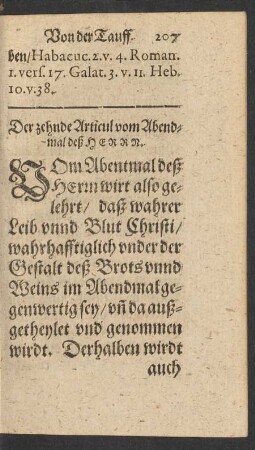 Von der Tauff. 207
ben/Habacuc.2.v. 4. Roman.
1.vers.17. Galat.3.v.11. Heb.
10.v.38.
Der zehnde Articul vom Abend-
mal deß HERRN.
VOm Abentmal deß
HErrn wirt also ge-
lehrt/ daß wahrer
Leib vnnd Blut Christi/
wahrhafftiglich vnder der
Gestalt deß Brots vnnd
Weins im Abendmal ge-
genwertig sey/ vñ da auß-
getheylet vnd genommen
wirdt. Derhalben wirdt
auch